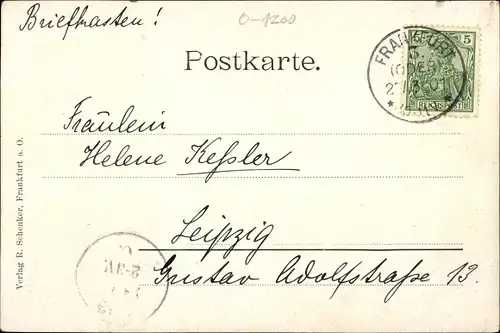 Briefkasten!
0-1200
Postkarte.
FRANKFURT
(ODER)
5
Fräulein
Helene Keßler
Leipzig
Gustav Adolfstraße 13.
Verlag R. Schenker, Frankfurt a. O.